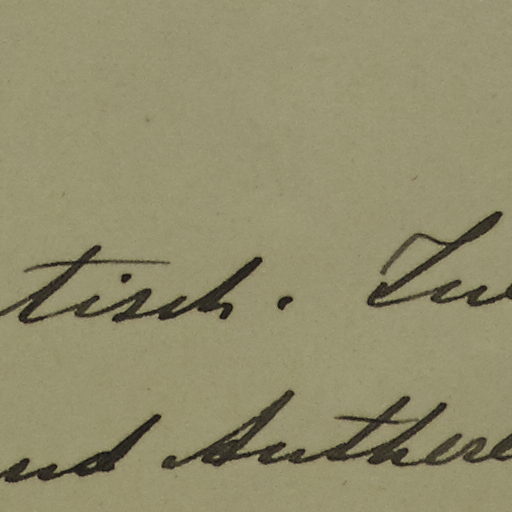 tisch. Zw
und Authere